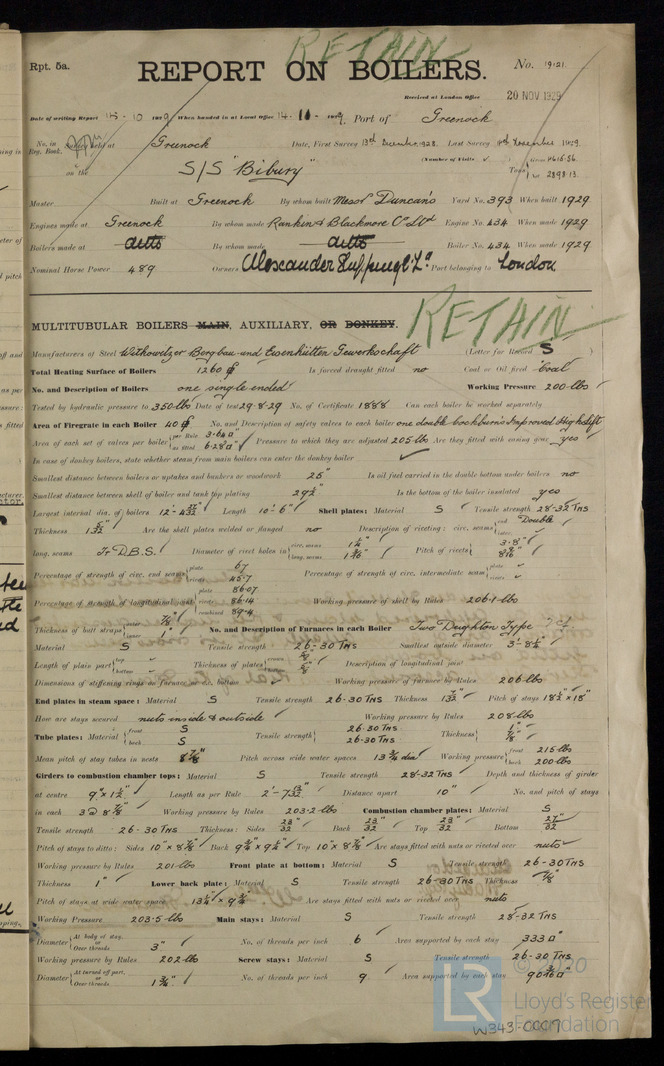 RETAIN
Rpt. 5a.
REPORT ON BOILERS.
No. 19121
Received at London Office 20 NOV 1929
Date of writing Report 10 1929 When handed in at Local Office 14 - 11 - 1929 Port of Greenock
No. in Reg. Book. held at Greenock Date, First Survey 13th December 1928 Last Survey November 1929
on the S/S "Bibury" (Number of Visits) Tons Gross 4616.56 Net 2898.13
Master Built at Greenock By whom built Messrs Duncan's Yard No. 393 When built 1929
Engines made at Greenock By whom made Rankin & Blackmore Co Ltd Engine No. 434 When made 1929
Boilers made at ditto By whom made ditto Boiler No. 434 When made 1929
Nominal Horse Power 489 Owners Alexander Shipping Co Ld Port belonging to London
RETAIN
MULTITUBULAR BOILERS MAIN, AUXILIARY, OR DONKEY.
Manufacturers of Steel Withowitzer Bergbau und Eisenhütten Gewerkschaft (Letter for Record S)
Total Heating Surface of Boilers 1260 Is forced draught fitted no Coal or Oil fired Coal
No. and Description of Boilers one single ended Working Pressure 200 lbs
Tested by hydraulic pressure to 350 lbs Date of test 29-8-29 No. of Certificate 1888 Can each boiler be worked separately
Area of Firegrate in each Boiler 40 No. and Description of safety valves to each boiler one double Cockburn's Improved Highlift
Area of each set of valves per boiler per Rule 3.64 as fitted 6.28 Pressure to which they are adjusted 205 lbs Are they fitted with easing gear yes
In case of donkey boilers, state whether steam from main boilers can enter the donkey boiler
Smallest distance between boilers or uptakes and bunkers or woodwork 25" Is oil fuel carried in the double bottom under boilers no
Smallest distance between shell of boiler and tank top plating 29½" Is the bottom of the boiler insulated yes
Largest internal dia. of boilers Length 10'-6" Shell plates: Material S Tensile strength 28-32 TNS
Thickness 1 5/32" Are the shell plates welded or flanged no Description of riveting: circ. seams end Double inter.
long. seams Tr D.B.S. Diameter of rivet holes in circ. seams 1¼" long. seams Pitch of rivets 3.8"
Percentage of strength of circ. end seams plate 67 rivets 45.7 Percentage of strength of circ. intermediate seam plate rivets
Percentage of strength of longitudinal joint plate 86.07 rivets 86.14 combined 89.4 Working pressure of shell by Rules 206.1 lbs
Thickness of butt straps outer 7/8" inner 1" No. and Description of Furnaces in each Boiler Two Deighton Type
Material S Tensile strength 26-30 TNS Smallest outside diameter 3'-8¼"
Length of plain part top bottom Thickness of plates crown bottom 5/8" Description of longitudinal joint
Dimensions of stiffening rings on furnace or c.c. bottom Working pressure of furnace by Rules 206 lbs
End plates in steam space: Material S Tensile strength 26-30 TNS Thickness 1 3/32" Pitch of stays 18½" x 18"
How are stays secured nuts inside & outside Working pressure by Rules 208 lbs
Tube plates: Material front S back S Tensile strength 26-30 TNS 26-30 TNS Thickness 1" 7/8"
Mean pitch of stay tubes in nests 8 7/8" Pitch across wide water spaces 13¾ dia Working pressure front 215 lbs back 200 lbs
Girders to combustion chamber tops: Material S Tensile strength 28-32 TNS Depth and thickness of girder
at centre 9" x 1½" Length as per Rule Distance apart 10" No. and pitch of stays
in each 3 @ 8 7/8" Working pressure by Rules 203.2 lbs Combustion chamber plates: Material S
Tensile strength 26-30 TNS Thickness: Sides 23/32" Back 23/32" Top 23/32" Bottom 27/32"
Pitch of stays to ditto: Sides 10" x 8 7/8" Back Top 10" x 8 7/8" Are stays fitted with nuts or riveted over nuts
Working pressure by Rules 201 lbs Front plate at bottom: Material S Tensile strength 26-30 TNS
Thickness 1" Lower back plate: Material S Tensile strength 26-30 TNS Thickness 7/8"
Pitch of stays at wide water space Are stays fitted with nuts or riveted over nuts
Working Pressure 203.5 lbs Main stays: Material S Tensile strength 28-32 TNS
Diameter At body of stay, or Over threads 3" No. of threads per inch 6 Area supported by each stay 333
Working pressure by Rules 202 lbs Screw stays: Material S Tensile strength 26-30 TNS
Diameter At turned off part, or Over threads 1¾" No. of threads per inch 9 Area supported by each stay
© 2020
LR Lloyd's Register Foundation
W343-0009